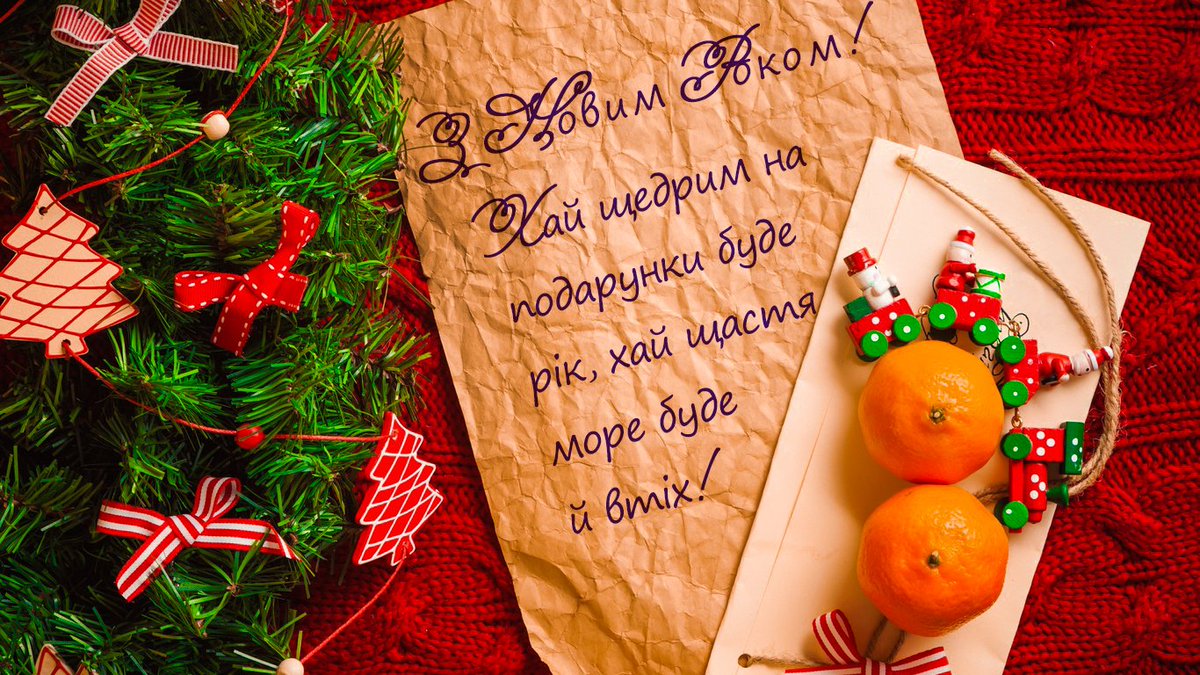 З Новим Роком!
Хай щедрим на
подарунки буде
рік, хай щастя
море буде
й втіх!